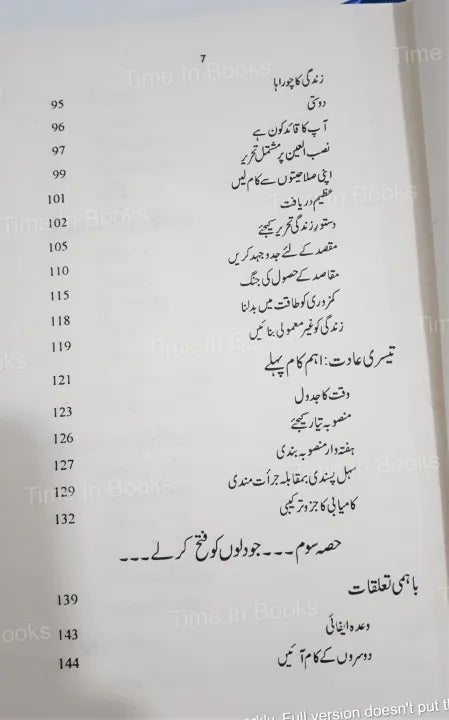 7
زندگی کا چوراہا 95
دوستی 96
آپ کا قائد کون ہے 97
نصب العین پر مشتمل تحریر 99
اپنی صلاحیتوں سے کام لیں 101
عظیم دریافت 102
دستورِ زندگی تحریر کیجئے 105
مقصد کے لئے جدوجہد کریں 110
مقاصد کے حصول کی جنگ 115
کمزوری کو طاقت میں بدلنا 118
زندگی کو غیر معمولی بنائیں 119
تیسری عادت: اہم کام پہلے 121
وقت کا جدول 123
منصوبہ تیار کیجئے 126
ہفتہ وار منصوبہ بندی 127
سہل پسندی بمقابلہ جرأت مندی 129
کامیابی کا جزو ترکیبی 132
حصہ سوم ۔۔۔ جو دلوں کو فتح کر لے ۔۔۔
باہمی تعلقات 139
وعدہ ایفائی 143
دوسروں کے کام آئیں 144
Time In Books
Time In Books
Time In Books
Time In Books
Time In Books
Time In Books
Time In Books
Full version doesn't put t